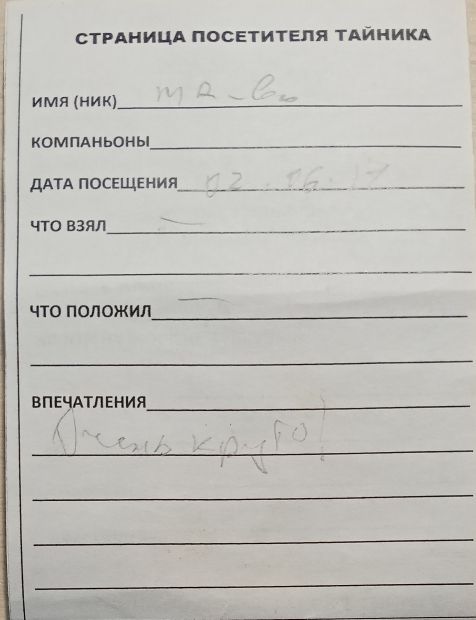 СТРАНИЦА ПОСЕТИТЕЛЯ ТАЙНИКА
ИМЯ (НИК)
КОМПАНЬОНЫ
ДАТА ПОСЕЩЕНИЯ 02.06.17
ЧТО ВЗЯЛ —
ЧТО ПОЛОЖИЛ —
ВПЕЧАТЛЕНИЯ
Очень круто!